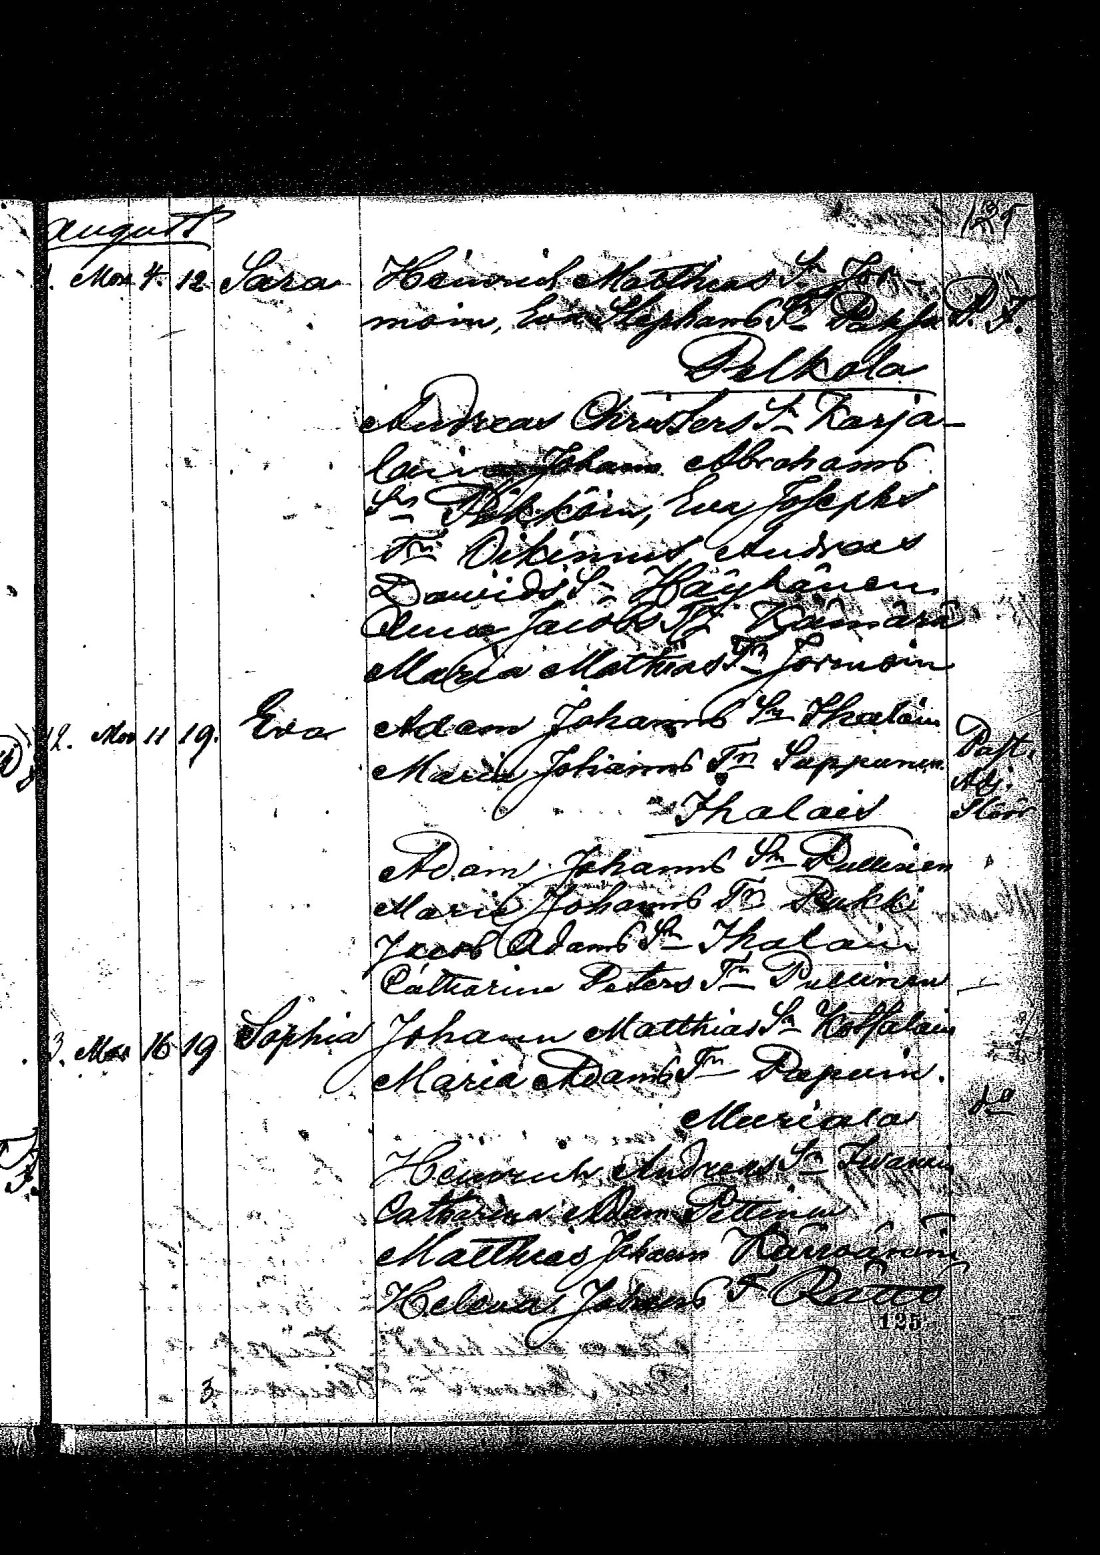 August
125
1. Mos 4. 12 Sara Heinrich Matthias Sn Jor-
moin, Eva Stephans Tr P. F.
Pelkola
Andreas Christers Sn Karja-
lain Johann Abrahams
Sn Pökköin, Eva Josephs
Tr Andreas
Dawids Sn Häyhänen
Anna Jacobs Tr Kämärä
Maria Mathias Tr Jormoin
12. Mos 11 19. Eva Adam Johanns Sn Ihalain
Maria Johanns Tr Suppunen Past.
Adj.
Ihalais
Adam Johanns Sn Pullinen
Maria Johanns Tr Pukki
Jacob Adams Sn Ihalain
Catharina Peters Tr Pullinen
3. Mos 16 19 Sophia Johann Matthias Sn
Maria Adams Tr Papuin.
do
Muriala
Heinrich Andreas Sn Iwanen
Catharina Adam Pettinen
Matthias Johan
Helena Johans T Rättö
125
3